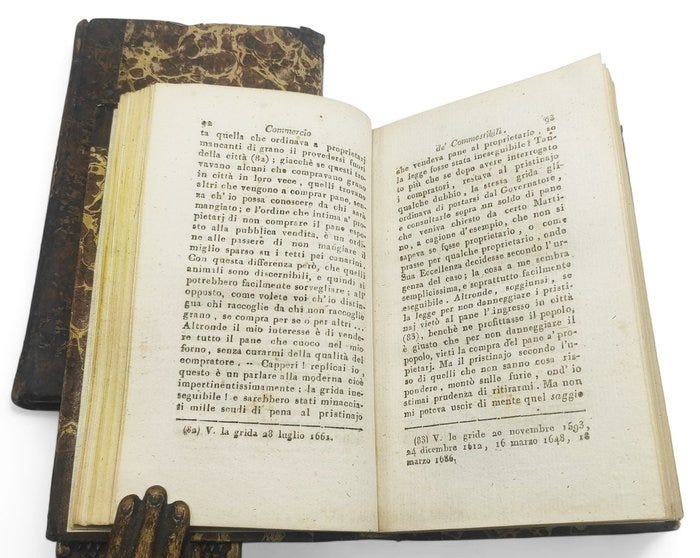 92
Commercio
ta quella che ordinava a proprietarj
mancanti di grano il provedersi fuori
della città (82); giacchè se questi tro-
vavano alcuni che compravano grano
in città in loro vece, quelli trovano
altri che vengono a comprar pane, sen-
za ch'io possa conoscere da chi sarà
mangiato; e l'ordine che intima a' pro-
pietarj di non comprare il pane espo-
sto alla pubblica vendita, è un ordi-
ne alle passere di non mangiare il
miglio sparso su i tetti pei canarini.
Con questa differenza però, che quelli
animali sono discernibili, e quindi si
potrebbero facilmente sorvegliare; all'
opposto, come volete voi ch'io distin-
gua chi raccoglie da chi non raccoglie
grano, se compra per se o per altri ...
Altronde il mio interesse è di vende-
re tutto il pane che cuoco nel mio
forno, senza curarmi della qualità del
compratore. – Capperi! replicai io,
questo è un parlare alla moderna cioè
impertinentissimamente: la grida ine-
seguibile! e sarebbero stati minaccia-
ti mille scudi di pena al pristinajo
(82) V. la grida 28 luglio 1661.
de' Commestibili.
93
che vendeva pane al proprietario, se
la legge fosse stata ineseguibile? Tan-
to più che se dopo avere interrogato
i compratori, restava al pristinajo
qualche dubbio, la stessa grida gli
ordinava di portarsi dal Governatore,
e consultarlo sopra un soldo di pane
che veniva chiesto da certo Marti-
no, a cagione d'esempio, che non si
sapeva se fosse proprietario, o com-
prasse per qualche proprietario, onde
Sua Eccellenza decidesse secondo l'ur-
genza del caso; la cosa a me sembra
semplicissima, e soprattutto facilmente
eseguibile. Altronde, soggiunsi, se
la legge per non danneggiare i pristi-
naj vietò al pane l'ingresso in città
(83), benchè ne profittasse il popolo,
è giusto che per non danneggiare il
popolo, vieti la compra del pane a' pro-
pietarj. Ma il pristinajo secondo l'u-
so di quelli che non sanno cosa ris-
pondere, montò sulle furie, ond'io
stimai prudenza di ritirarmi. Ma non
mi poteva uscir di mente quel saggio
(83) V. le gride 20 novembre 1593,
24 dicembre 1612, 16 marzo 1648, 18
marzo 1686.